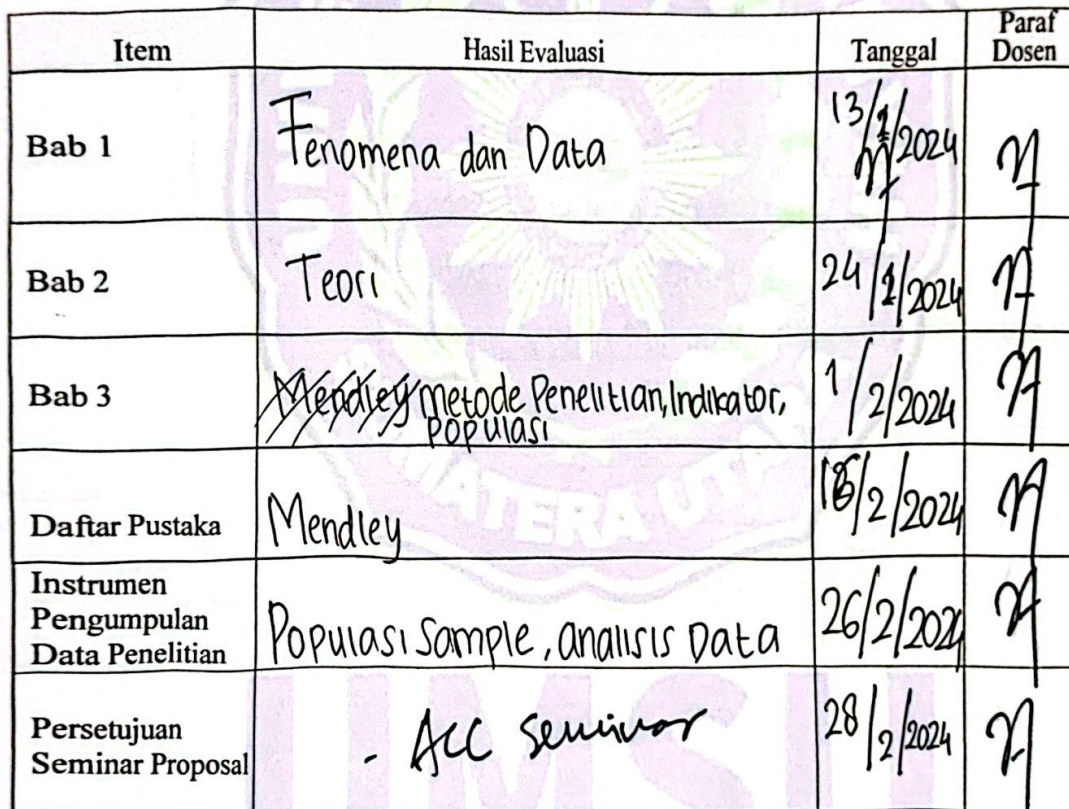 Item Hasil Evaluasi Tanggal Paraf Dosen
Bab 1 Fenomena dan Data 13/1/2024
Bab 2 Teori 24/1/2024
Bab 3 Mendley metode Penelitian, Indikator, populasi 1/2/2024
Daftar Pustaka Mendley /2/2024
Instrumen
Pengumpulan
Data Penelitian Populasi Sample, analisis Data 26/2/2024
Persetujuan
Seminar Proposal - ACC seminar 28/2/2024
MATERA UTA
UMSU